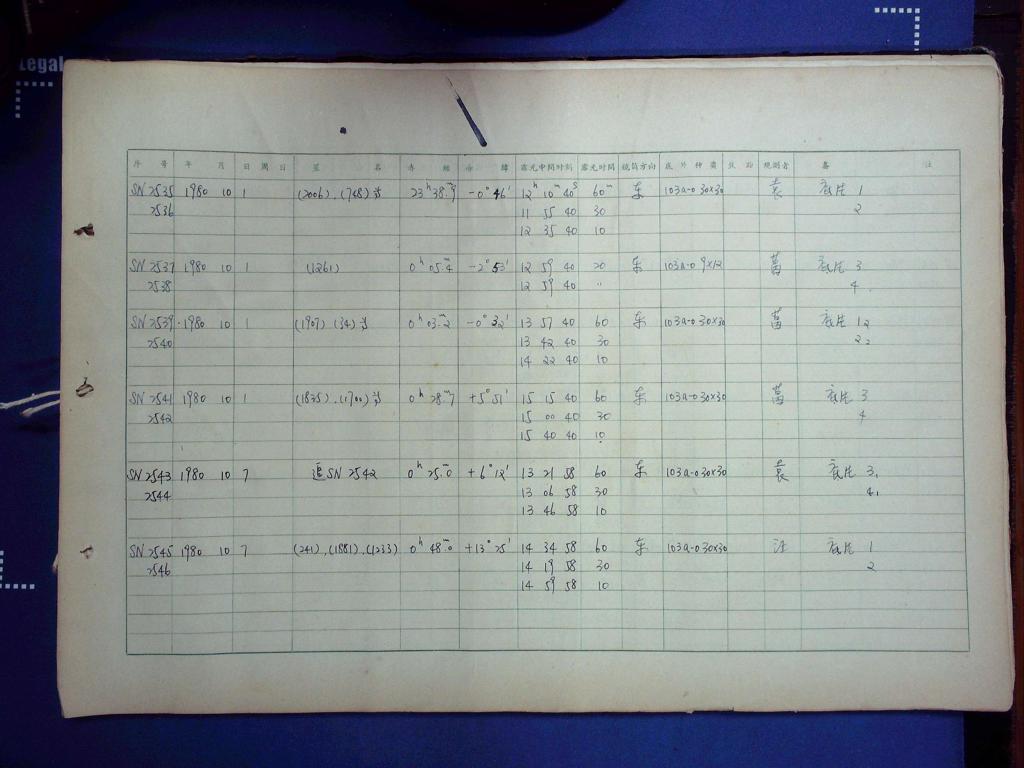 Legal
序号 年 月 日 周日 星名 赤经 赤纬 露光中间时刻 露光时间 镜筒方向 底片种类 观测者 备注
SN 2535 1980 10 1 (2006), (748) 23h 38.m9 -0° 46' 12h 10m 40s 60m 东 103a-0 30×30 袁 底片 1
2536 11 55 40 30 2
12 35 40 10
SN 2537 1980 10 1 (1261) 0h 05.m4 -2° 53' 12 59 40 20 东 103a-0 9×12 底片 3
2538 12 59 40 " 4
SN 2539 1980 10 1 (1907) (34) 0h 03.m2 -0° 32' 13 57 40 60 东 103a-0 30×30 底片 1
2540 13 42 40 30 2
14 22 40 10
SN 2541 1980 10 1 (1835), (1700) 0h 28.m7 +5° 51' 15 15 40 60 东 103a-0 30×30 底片 3
2542 15 00 40 30 4
15 40 40 10
SN 2543 1980 10 7 追 SN 2542 0h 25.m0 +6° 12' 13 21 58 60 东 103a-0 30×30 袁 底片 3
2544 13 06 58 30 4
13 46 58 10
SN 2545 1980 10 7 (241), (1881), (1233) 0h 48.m0 +13° 25' 14 34 58 60 东 103a-0 30×30 汪 底片 1
2546 14 19 58 30 2
14 59 58 10